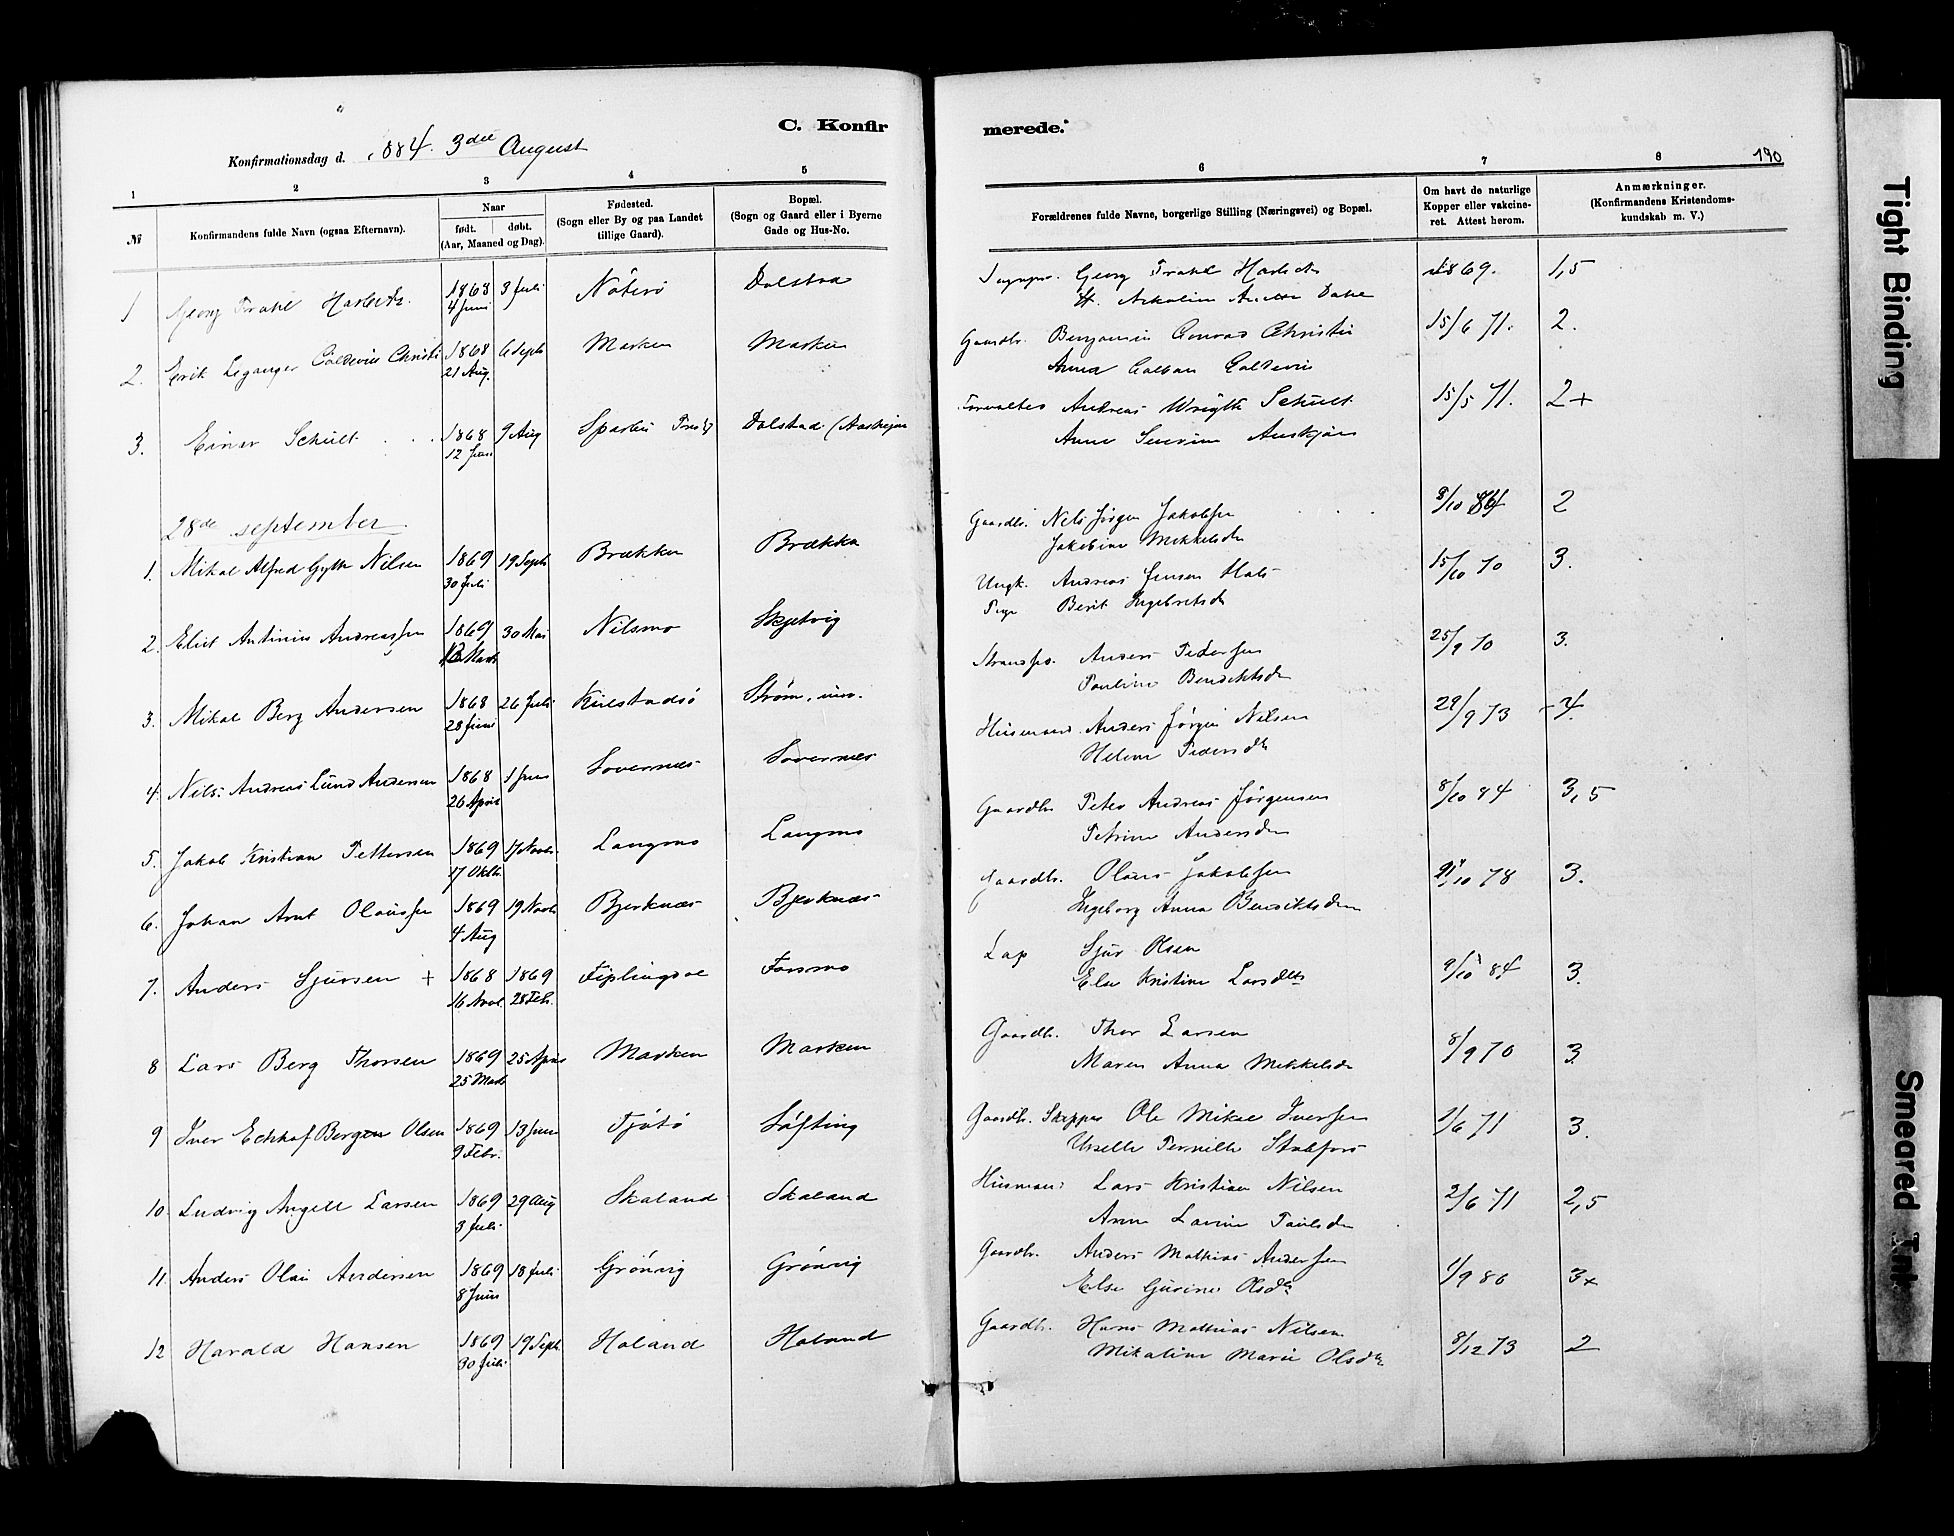 C. Konfirmerede.
Konfirmationsdag d. 1884. 3die August
190
1 2 3 4 5 6 7 8
№
Konfirmandens fulde Navn (ogsaa Efternavn).
Naar
født. døbt.
(Aar, Maaned og Dag).
Fødested.
(Sogn eller By og paa Landet
tillige Gaard).
Bopæl.
(Sogn og Gaard eller i Byerne
Gade og Hus-No.
Forældrenes fulde Navne, borgerlige Stilling (Næringsvei) og Bopæl.
Om havt de naturlige
Kopper eller vakcine-
ret. Attest herom.
Anmærkninger.
(Konfirmandens Kristendoms-
kundskab m. V.)
1 Georg 1868 3 Juli Nøterø Dolstad Georg 1869. 1,5
4 Juni
2. Erik Leganger Coldevin Christi 1868 6 Septb Marken Marken Gaardbr. Benjamin Conrad Christi 15/6 71. 2.
21 Aug. Anna Colban Coldevin
3. Einar Schult 1868 9 Aug Sparbu Dolstad Forvalter Andreas Schult 15/5 71. 2+
12 Anne
28de september
1. Mikal Alfred Nilsen 1869 19 Septb Brækken Brækka Gaardbr. Nils Jørgen Jakobsen 8/10 84 2
30 Juli Jakobine Mikkelsdr
2. Eliot Antinius Andreassen 1869 30 Mai Nilsmo Skjetvig Ungk. Andreas Jensen 15/10 70 3.
Marts Pige Berit Ingebretsdr
3. Mikal Berg Andersen 1868 26 Juli Kulstadsø Strøm Anders Pedersen 25/9 70 3.
28 Juni Pauline Bendiktsdr
4. Nils Andreas Lund Andersen 1868 1 Juni Sovernæs Sovernæs Husmand Anders Jørgen Nilsen 29/9 73 4.
26 April Helene Pedersdtr
5. Jakob Kristian Pettersen 1869 17 Novbr Langmo Langmo Gaardbr. Peter Andreas Jørgensen 8/10 84 3,5
17 Oktb. Petrine Andersdr
6. Johan Arnt Olaussen 1869 19 Novb Bjerknæs Bjerknæs Gaardbr. Olaus Jakobsen /10 78 3.
4 Aug Ingeborg Anna Bendiktsdr
7. Anders Sjursen + 1868 1869 Fiplingdal Forsmo Lap Sjur Olsen 9/10 84 3.
16 Novb. 28 Feb. Else Kristine Larsdtr
8 Lars Berg Thorsen 1869 25 April Marken Marken Gaardbr. Thor Larsen 8/9 70 3.
25 Marts Maren Anna Mikkelsdr
9 Iver Bergen Olsen 1869 13 Juni Tjøtø Løfting Gaardbr. Skipper Ole Mikal Iversen 2/6 71 3.
9 Febr. Pernille Stabfors
10. Ludvig Angell Larsen 1869 29 Aug Skaland Skaland Husmand Lars Kristian Nilsen 2/6 71 2,5
3 Juli Anne Lovine Paulsdr
11. Anders Olai Andersen 1869 18 Juli Grønvig Grønvig Gaardbr. Anders Mathias Andersen 1/9 80 3+
8 Juni Else Gurine Olsdtr
12 Harald Hansen 1869 19 Septb. Holand Holand Gaardbr. Hans Mathias Nilsen 8/12 73 2
30 Juli Mikaline Marie Olsdtr
Tight Binding
Smeared Ink